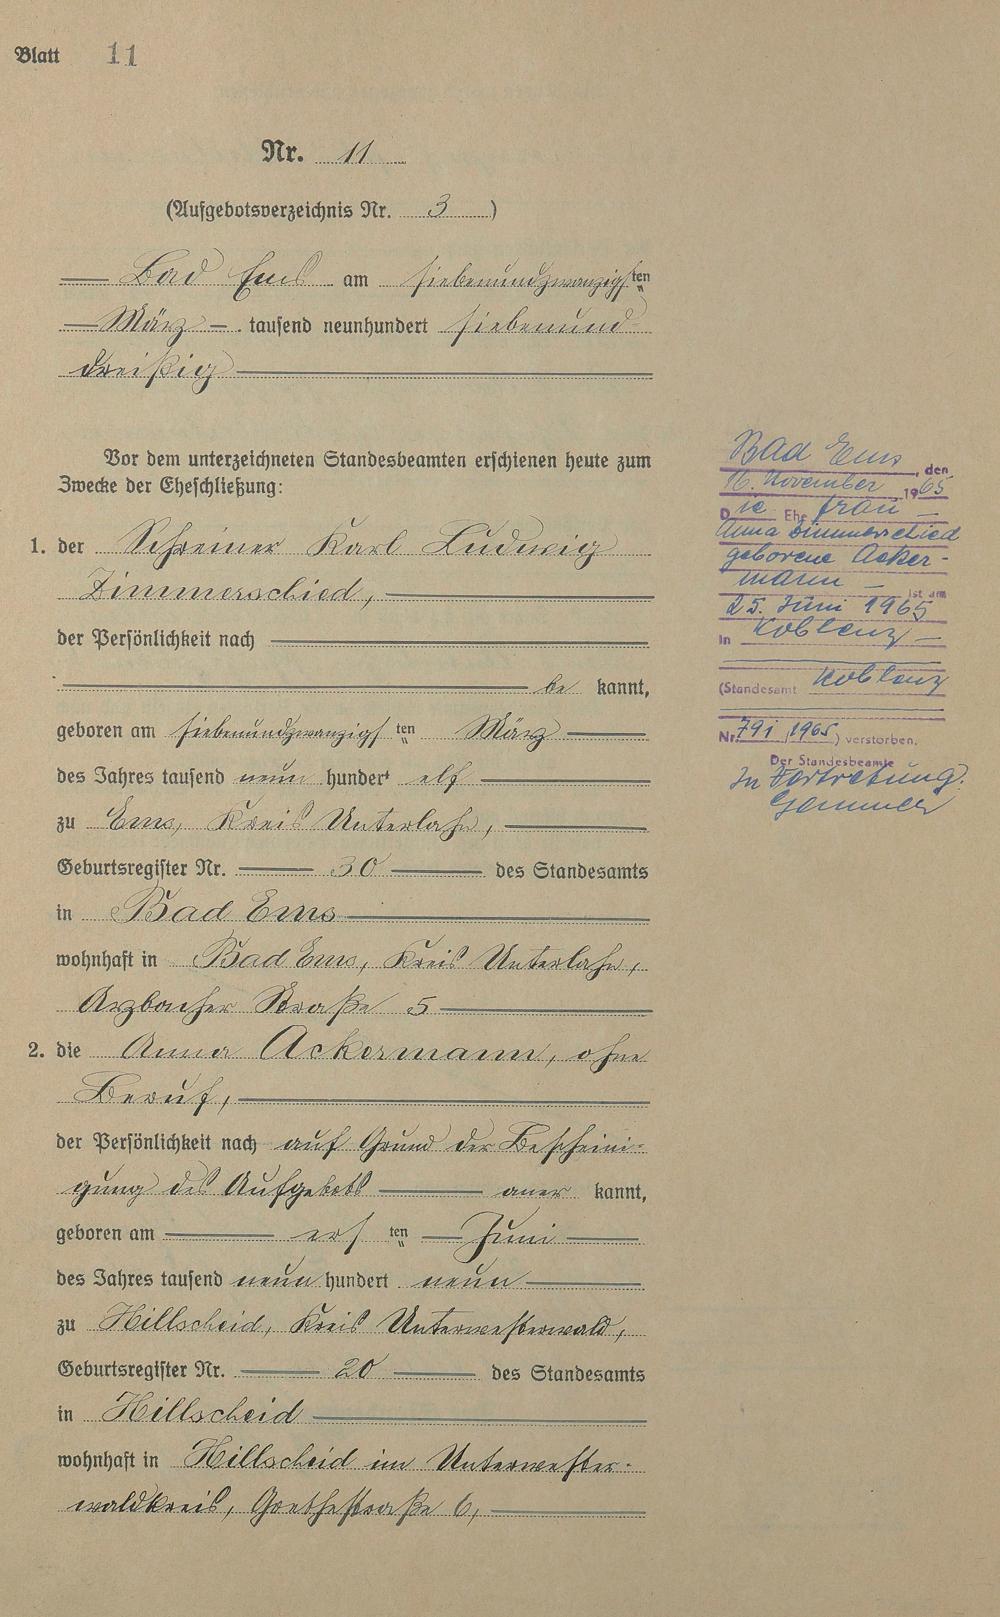 Blatt 11
Nr. 11
(Aufgebotsverzeichnis Nr. 3)
Bad Ems am siebenundzwanzigsten
März tausend neunhundert siebenund-
dreißig
Vor dem unterzeichneten Standesbeamten erschienen heute zum
Zwecke der Eheschließung:
1. der Schreiner Karl Ludwig
Zimmerschied,
der Persönlichkeit nach
be kannt,
geboren am siebenundzwanzigsten März
des Jahres tausend neun hundert elf
zu Ems, Kreis Unterlahn,
Geburtsregister Nr. 30 des Standesamts
in Bad Ems
wohnhaft in Bad Ems, Kreis Unterlahn,
Arzbacher Straße 5
2. die Anna Ackermann, ohne
Beruf,
der Persönlichkeit nach auf Grund der Bescheini-
gung des Aufgebots aner kannt,
geboren am ersten Juni
des Jahres tausend neun hundert neun
zu Hillscheid, Kreis Unterwesterwald,
Geburtsregister Nr. 20 des Standesamts
in Hillscheid
wohnhaft in Hillscheid im Unterwester-
waldkreis, Goethestraße 6,
Bad Ems, den
16. November 1965
Die Ehefrau
Anna Zimmerschied
geborene Acker-
mann ist am
25. Juni 1965
in Koblenz
(Standesamt Koblenz
Nr. 791, 1965) verstorben.
Der Standesbeamte
In Vertretung: